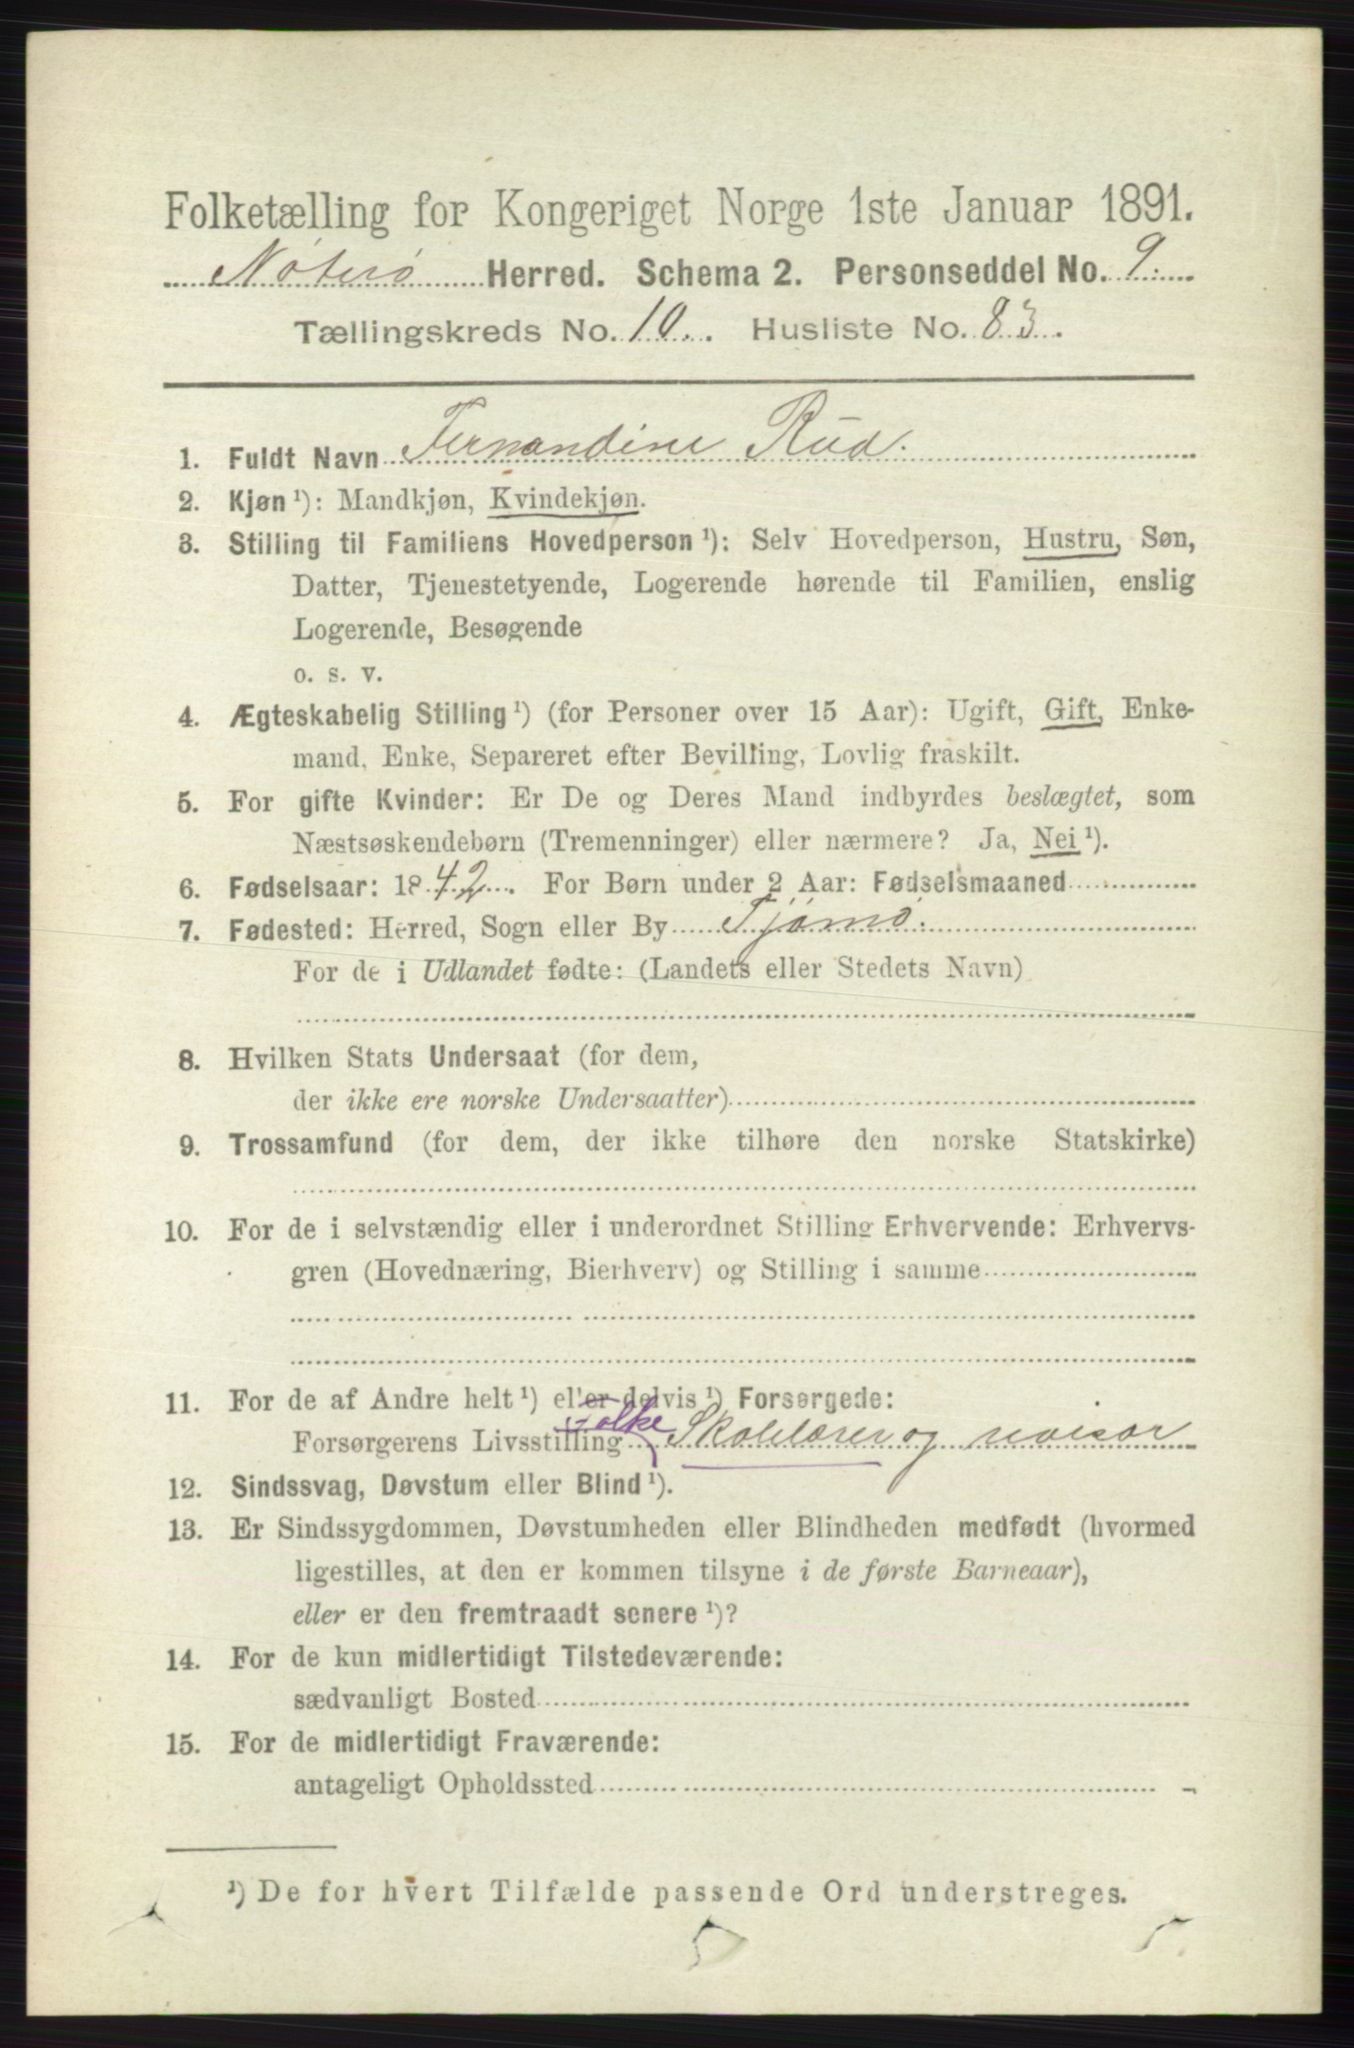 Folketælling for Kongeriget Norge 1ste Januar 1891.
Nøterø Herred. Schema 2. Personseddel No. 9.
Tællingskreds No. 10. Husliste No. 83.
1. Fuldt Navn Fernandine Rud.
2. Kjøn ¹): Mandkjøn, Kvindekjøn.
3. Stilling til Familiens Hovedperson ¹): Selv Hovedperson, Hustru, Søn,
Datter, Tjenestetyende, Logerende hørende til Familien, enslig
Logerende, Besøgende
o. s. v.
4. Ægteskabelig Stilling ¹) (for Personer over 15 Aar): Ugift, Gift, Enke-
mand, Enke, Separeret efter Bevilling, Lovlig fraskilt.
5. For gifte Kvinder: Er De og Deres Mand indbyrdes beslægtet, som
Næstsøskendebørn (Tremenninger) eller nærmere? Ja, Nei ¹).
6. Fødselsaar: 1842. For Børn under 2 Aar: Fødselsmaaned
7. Fødested: Herred, Sogn eller By Tjømø.
For de i Udlandet fødte: (Landets eller Stedets Navn)
8. Hvilken Stats Undersaat (for dem,
der ikke ere norske Undersaatter)
9. Trossamfund (for dem, der ikke tilhøre den norske Statskirke)
10. For de i selvstændig eller i underordnet Stilling Erhvervende: Erhvervs-
gren (Hovednæring, Bierhverv) og Stilling i samme
11. For de af Andre helt ¹) eller delvis ¹) Forsørgede:
Folke
Forsørgerens Livsstilling Skolelærer og revisor
12. Sindssvag, Døvstum eller Blind ¹).
13. Er Sindssygdommen, Døvstumheden eller Blindheden medfødt (hvormed
ligestilles, at den er kommen tilsyne i de første Barneaar),
eller er den fremtraadt senere ¹)?
14. For de kun midlertidigt Tilstedeværende:
sædvanligt Bosted
15. For de midlertidigt Fraværende:
antageligt Opholdssted
¹) De for hvert Tilfælde passende Ord understreges.